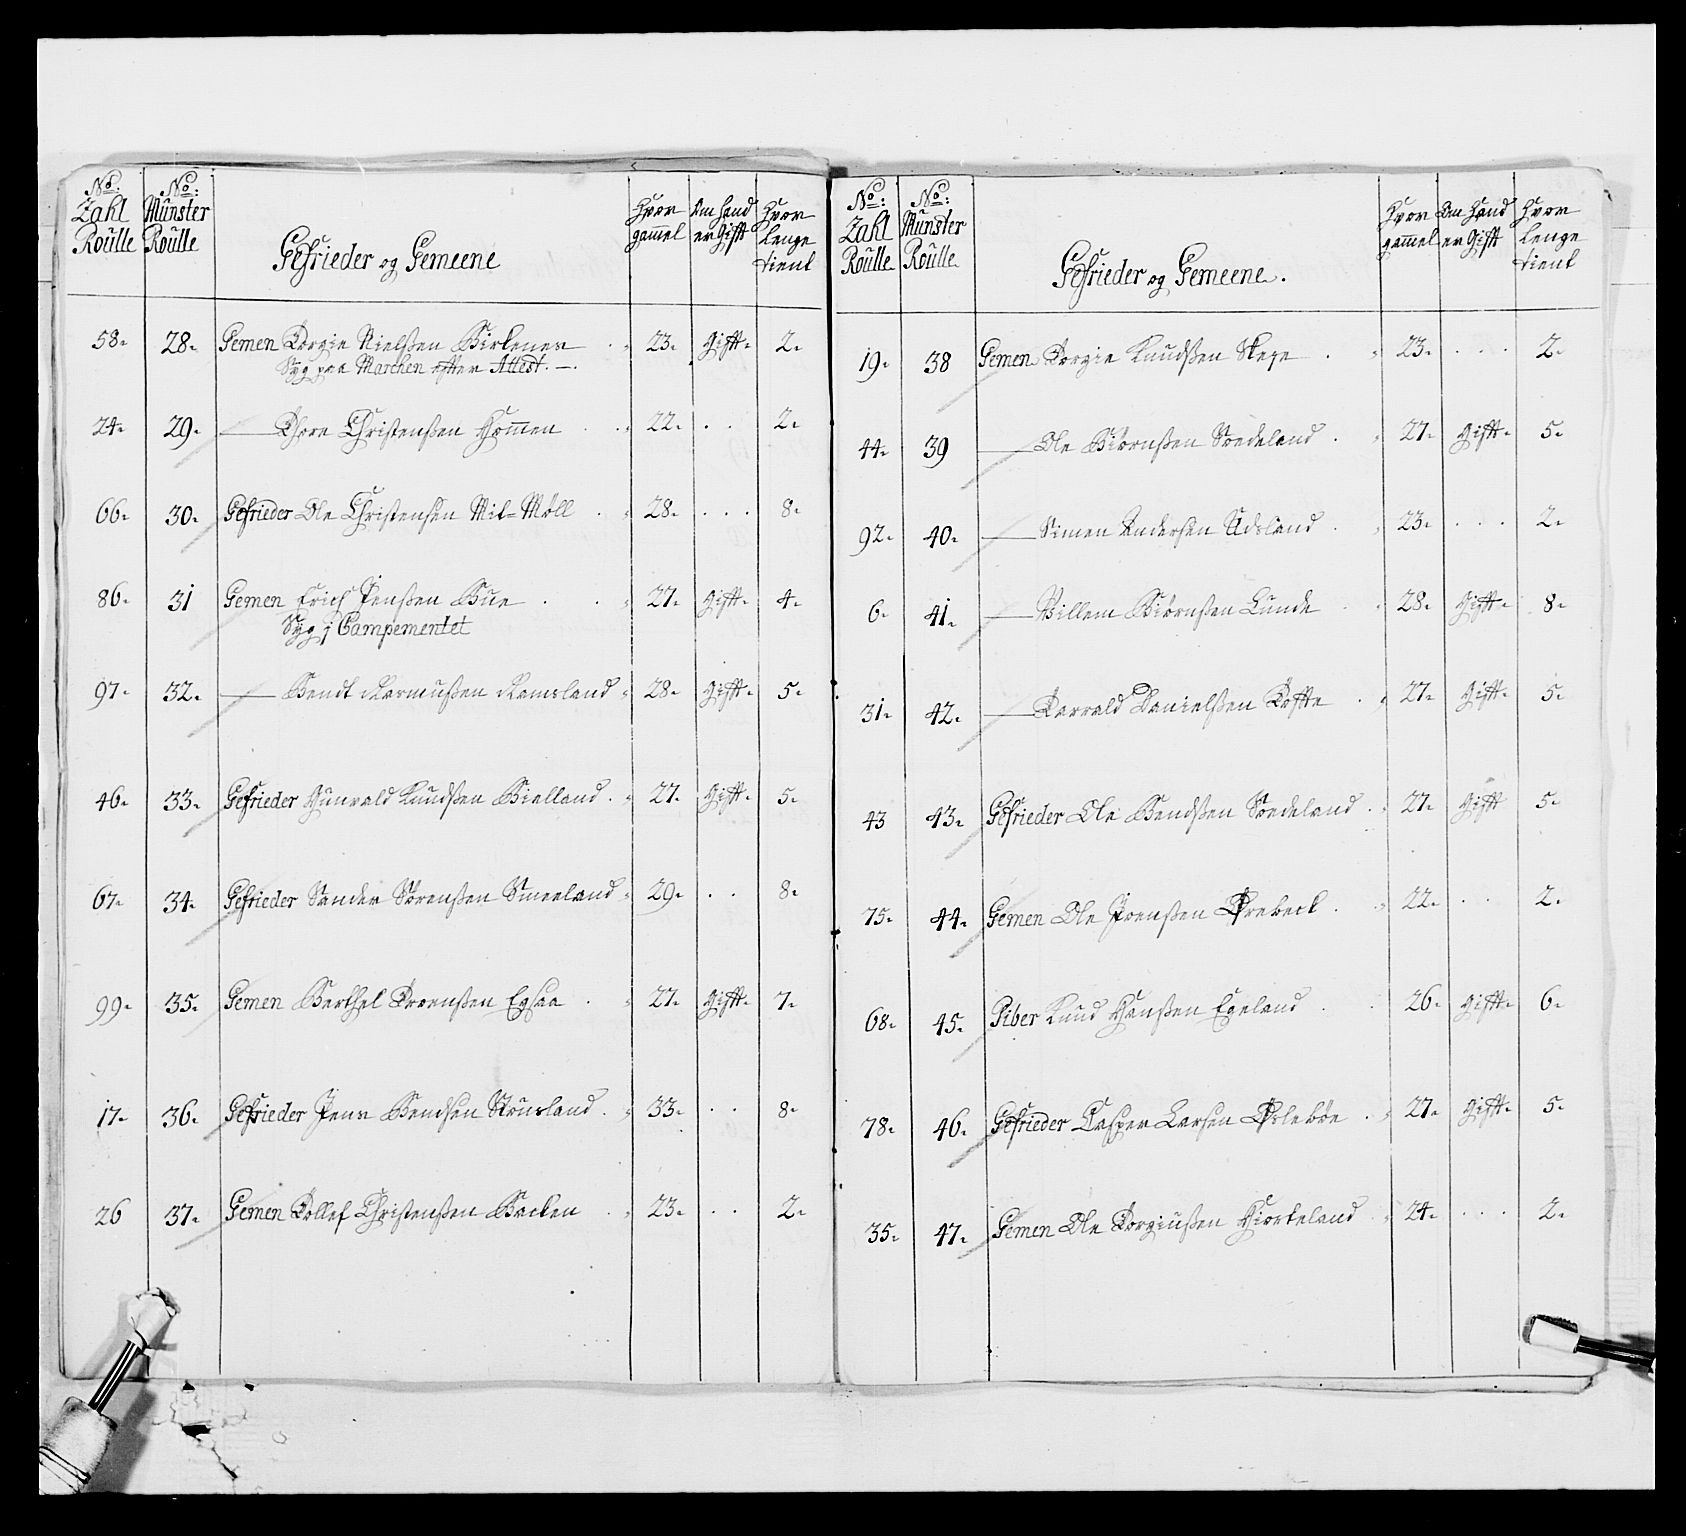 No: Zahl Roulle | No: Munster Roulle | Gefrieder og Gemeene | Hvor gammel | Om hand er Gift | Hvor lenge tient
58. 28. Gemen Torgie Nielsßen Birkenes 23. Gift. 2.
Syg paa Marchen efter Attest.
24. 29. Thore Christensßen Hommen 22. . . 2.
66. 30. Gefrieder Ole Christensen Mil-Möll 28. . . . 8.
86. 31 Gemen Erich Jensßen Bue 27. Gift. 4.
Syg j Campementet
97. 32. Bendt Aasmusßen Ramsland 28. Gift. 5.
46. 33. Gefrieder Gunvald Knudsßen Bielland 27. Gift. 5.
67. 34. Gefrieder Sander Sörensßen Smeeland 29. . . 8.
99. 35. Gemen Berthel Torensßen Egsaa 27. Gift. 7.
17. 36. Gefrieder Jens Bendsen Stousland 33. . . 8.
26 37. Gemen Tollef Christensßen Backen 23. . . 2.
No: Zahl Roulle | No: Munster Roulle | Gefrieder og Gemeene. | Hvor gammel | Om Hand er Gift | Hvor lenge tient
19. 38 Gemen Torgie Knudsßen Skeye 23. . . . 2.
44. 39 Ole Biörnsßen Soedeland 27. Gift. 5.
92. 40. Simen Andersen Udsland 23. . . . 2.
6. 41. Villem Biörnsßen Lunde 28. Gift. 8.
31. 42. Tarvald Danielsßen Tofte 27. Gift. 5.
43 43. Gefrieder Ole Bendsßen Soedeland 27. Gift 5.
75. 44. Gemen Ole Joensßen Örebeck 22. . . 2.
68. 45. Piber Knud Hansßen Egeland 26. Gift. 6.
78. 46. Gefrieder Casper Larsen Ösleböe 27. Gift. 5.
35. 47. Gemen Ole Torgiusßen Hiorteland 24. . . . 2.